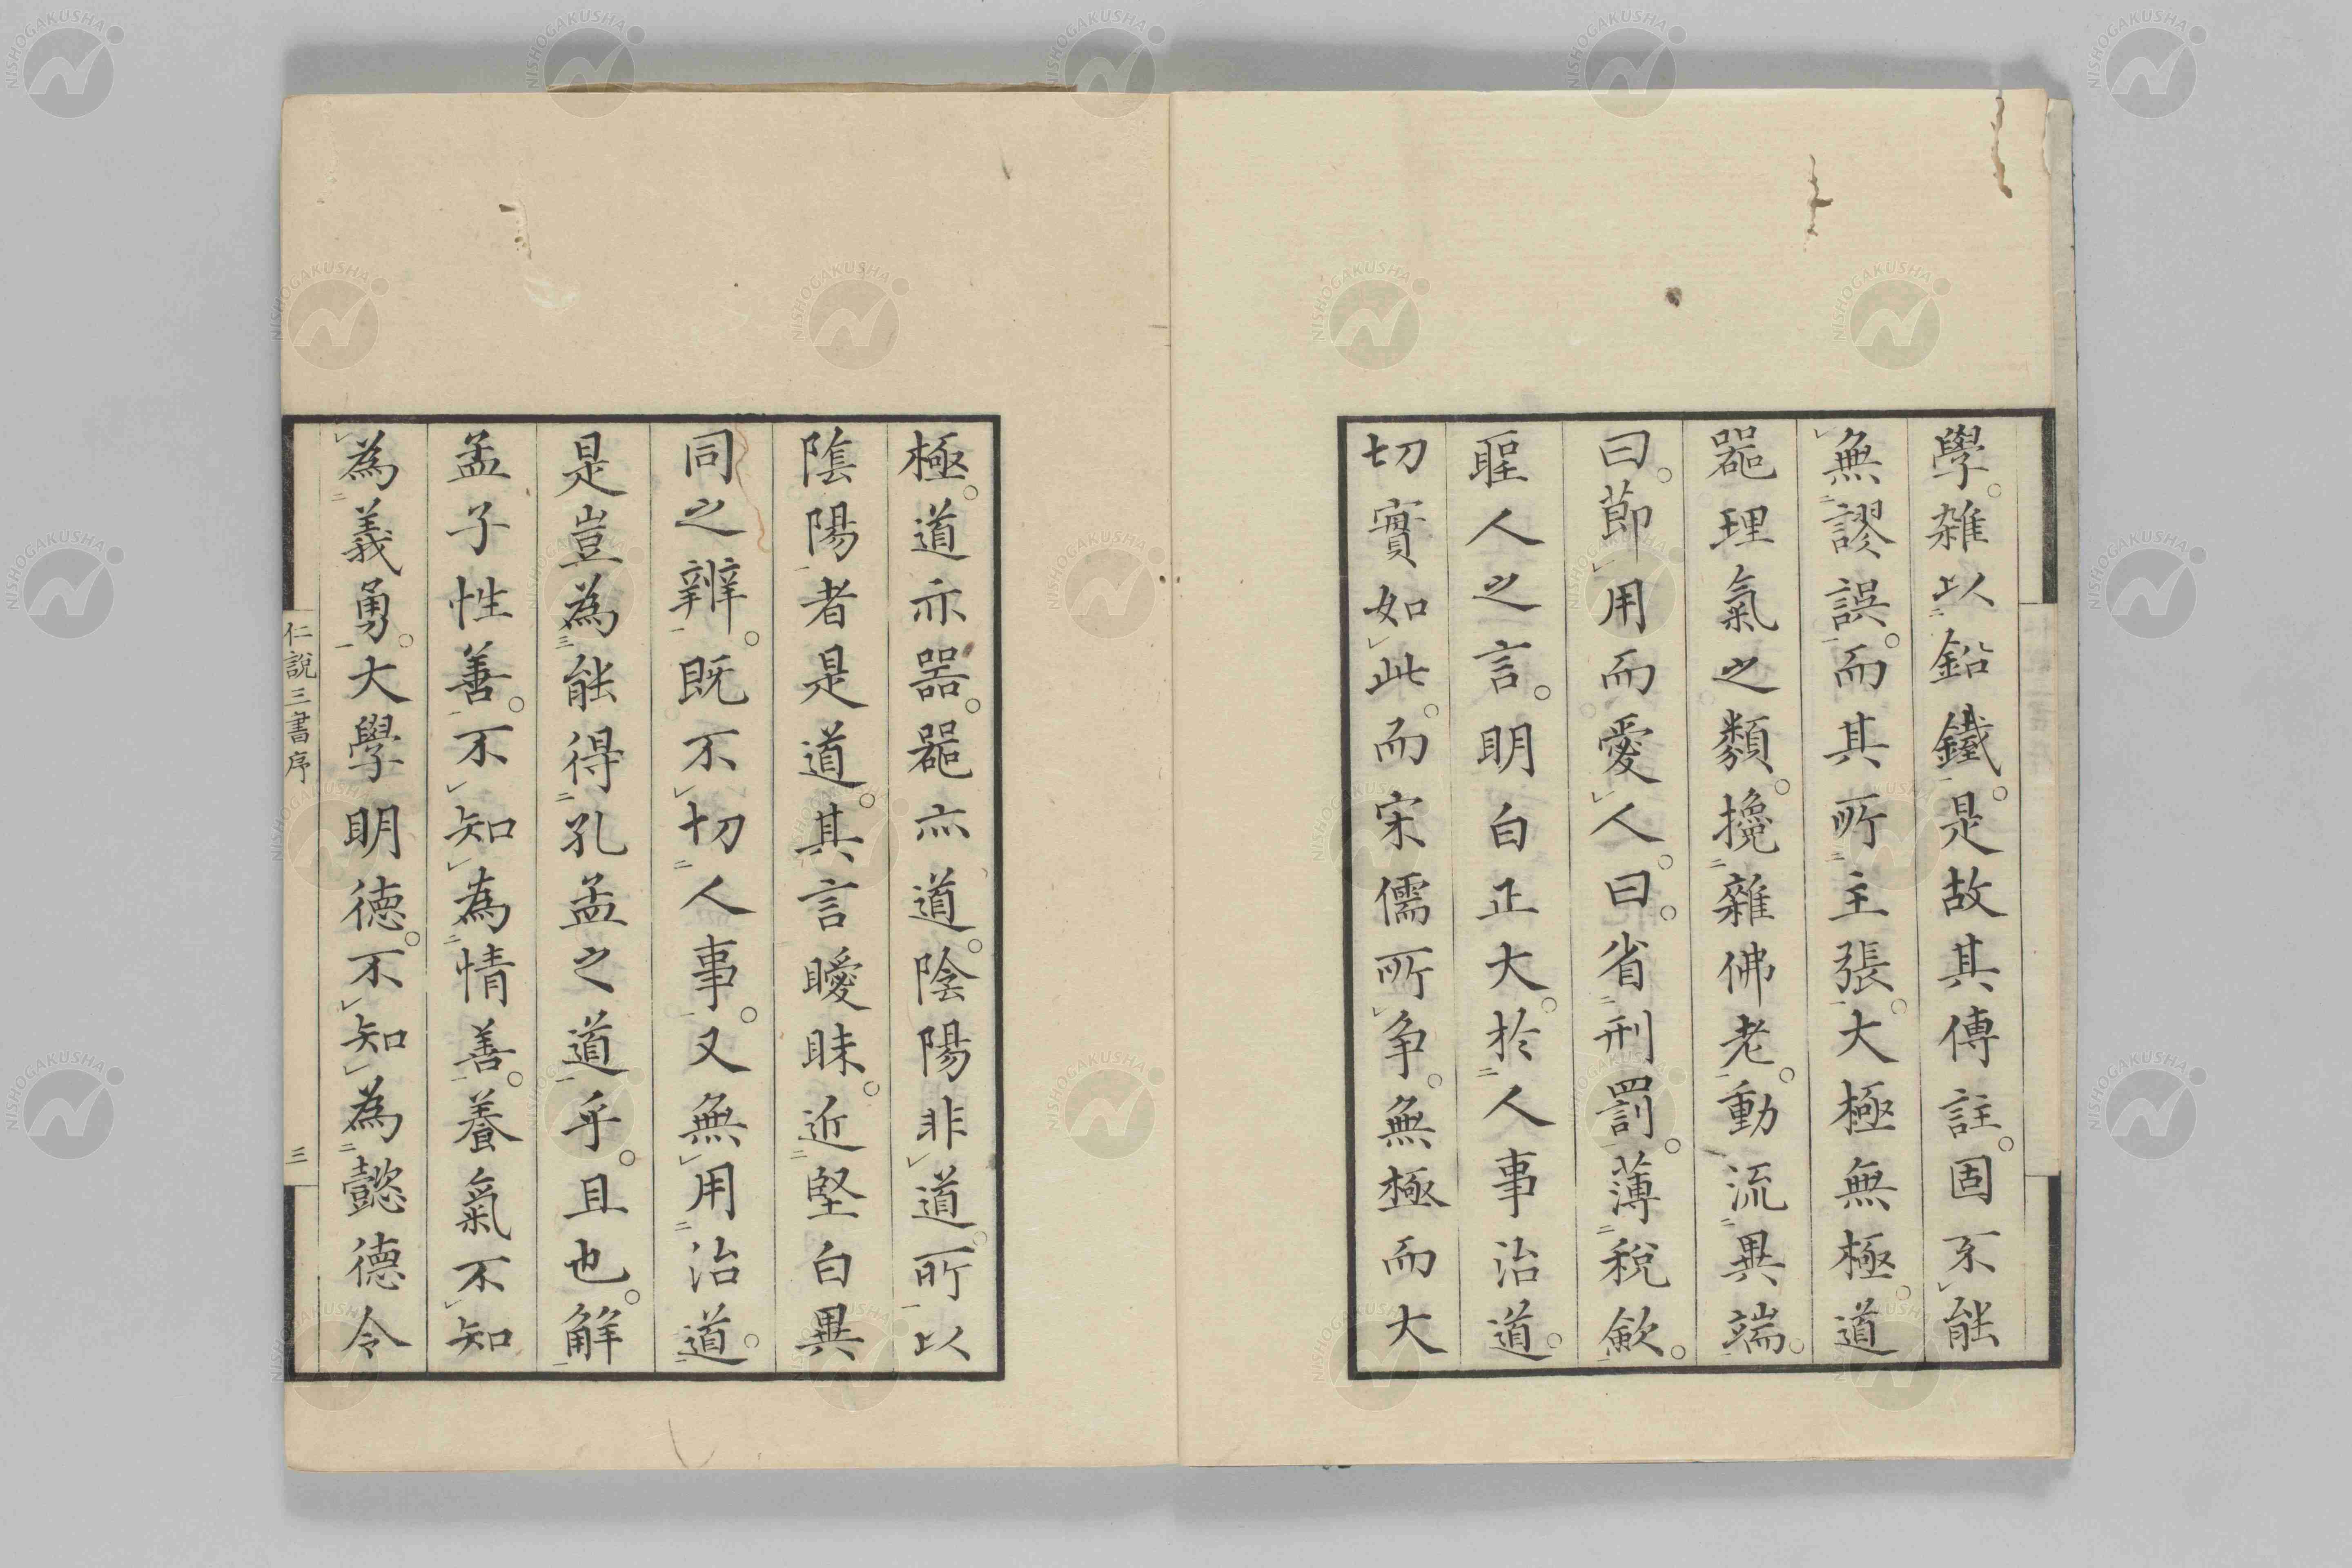 學。雜以鉛鐵。是故其傳註。固不能
無謬誤。而其所主張。大極無極。道
器理氣之類。攙雜佛老。動流異端。
曰。節用而愛人。曰。省刑罰。薄稅斂。
聖人之言。明白正大。於人事治道。
切實如此。而宋儒所爭。無極而大
極。道亦器。器亦道。陰陽非道。所以
陰陽者是道。其言曖昧。近堅白異
同之辨。既不切人事。又無用治道。
是豈為能得孔孟之道乎。且也。解
孟子性善。不知為情善。養氣不知
為義勇。大學明德。不知為懿德令
仁說三書序
三
NISHOGAKUSHA